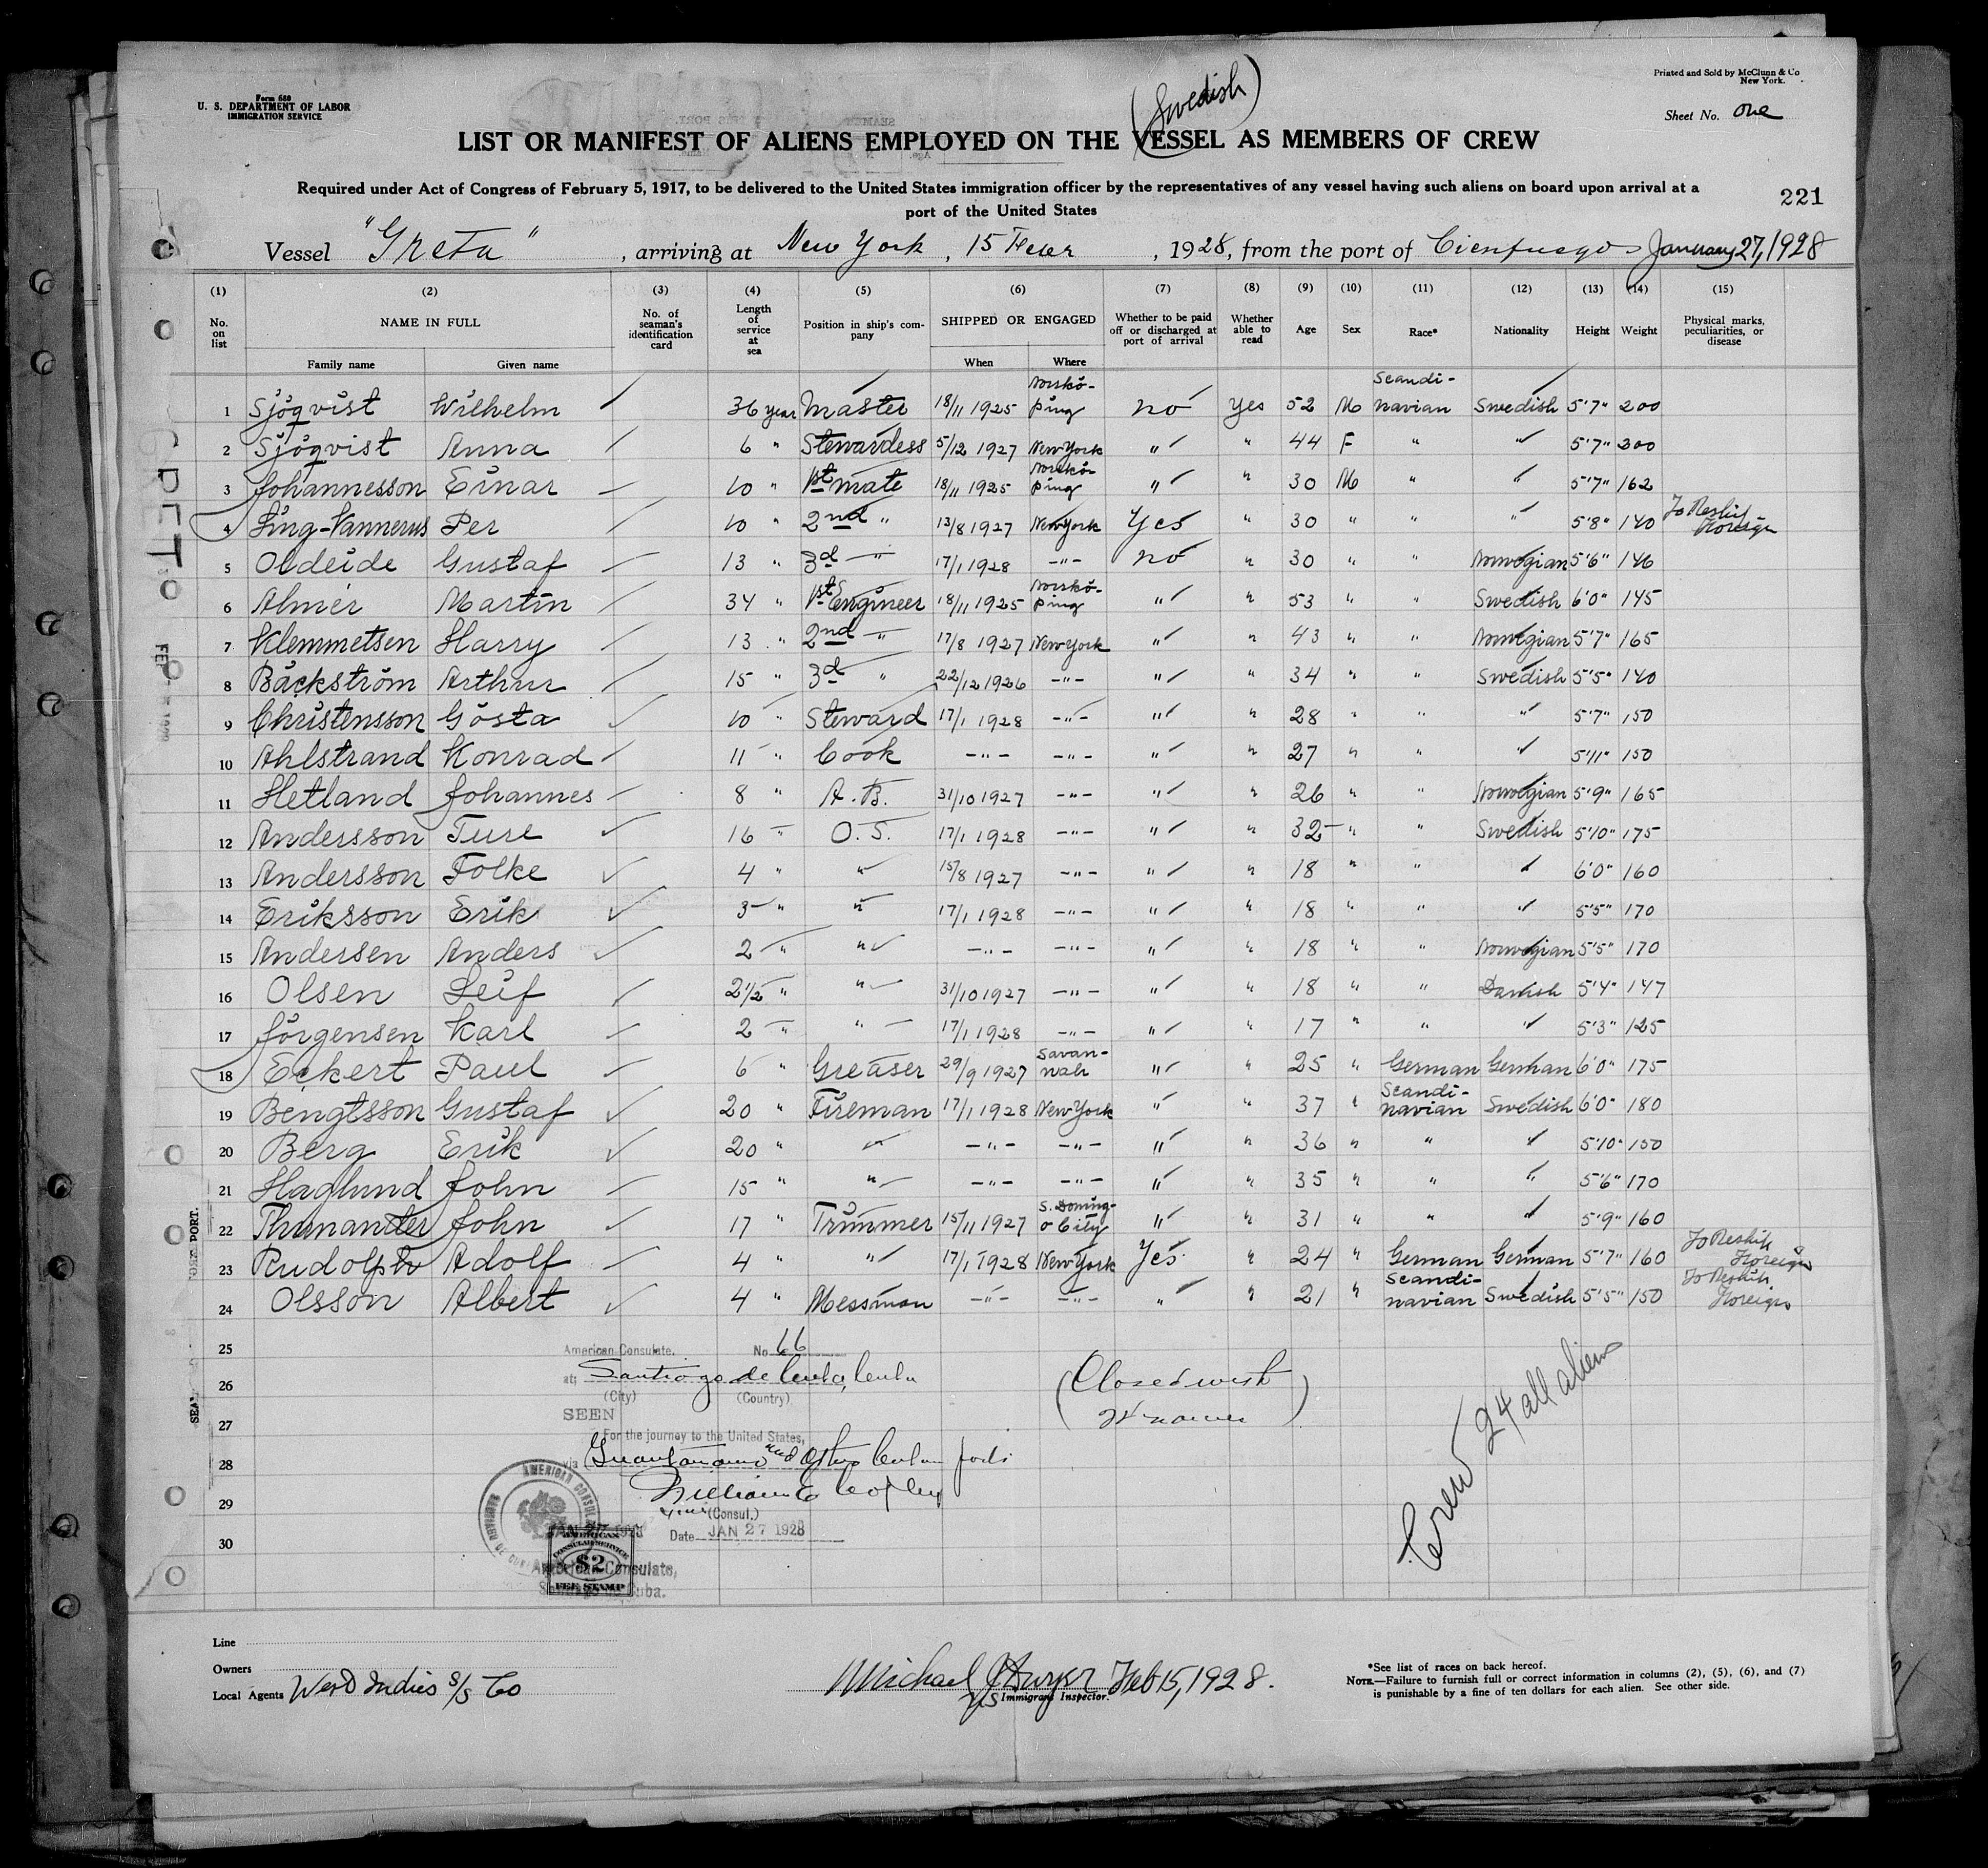 Form 680
U. S. DEPARTMENT OF LABOR
IMMIGRATION SERVICE
Printed and Sold by McClunn & Co
New York.
Sheet No. One
(Swedish)
LIST OR MANIFEST OF ALIENS EMPLOYED ON THE VESSEL AS MEMBERS OF CREW
Required under Act of Congress of February 5, 1917, to be delivered to the United States immigration officer by the representatives of any vessel having such aliens on board upon arrival at a
port of the United States
221
Vessel "Greta", arriving at New York, 15 Feber, 1928, from the port of Cienfuegos January 27, 1928
(1) (2) (3) (4) (5) (6) (7) (8) (9) (10) (11) (12) (13) (14) (15)
No. on list NAME IN FULL Family name Given name No. of seaman's identification card Length of service at sea Position in ship's company SHIPPED OR ENGAGED When Where Whether to be paid off or discharged at port of arrival Whether able to read Age Sex Race* Nationality Height Weight Physical marks, peculiarities, or disease
1 Sjöqvist Wilhelm 36 year Master 18/11 1925 Norrkö-ping no yes 52 M Scandi-navian Swedish 5'7" 200
2 Sjöqvist Anna 6 " Stewardess 5/12 1927 New York " " 44 F " " 5'7" 200
3 Johannesson Einar 10 " 1st mate 18/11 1925 Norrkö-ping " " 30 M " " 5'7" 162
4 Ling-Vannerus Per 10 " 2nd " 13/8 1927 New York Yes " 30 " " " 5'8" 140 To Reship Foreign
5 Oldeide Gustaf 13 " 3d " 17/1 1928 -"- no " 30 " " Norwegian 5'6" 146
6 Almér Martin 34 " 1st Engineer 18/11 1925 Norrkö-ping " " 53 " " Swedish 6'0" 145
7 Klemmetsen Harry 13 " 2nd " 17/8 1927 New York " " 43 " " Norwegian 5'7" 165
8 Bäckström Arthur 15 " 3d " 22/12 1926 -"- " " 34 " " Swedish 5'5" 140
9 Christensson Gösta 10 " Steward 17/1 1928 -"- " " 28 " " " 5'7" 150
10 Ahlstrand Konrad 11 " Cook -"- -"- " " 27 " " " 5'11" 150
11 Hetland Johannes 8 " A.B. 31/10 1927 -"- " " 26 " " Norwegian 5'9" 165
12 Andersson Ture 16 " O.S. 17/1 1928 -"- " " 32 " " Swedish 5'10" 175
13 Andersson Folke 4 " " 15/8 1927 -"- " " 18 " " " 6'0" 160
14 Eriksson Erik 3 " " 17/1 1928 -"- " " 18 " " " 5'5" 170
15 Andersen Anders 2 " " -"- -"- " " 18 " " Norwegian 5'5" 170
16 Olsen Leif 2½ " " 31/10 1927 -"- " " 18 " " Danish 5'4" 147
17 Jörgensen Karl 2 " " 17/1 1928 -"- " " 17 " " " 5'3" 125
18 Eckert Paul 6 " Greaser 29/9 1927 Savan-nah " " 25 " German German 6'0" 175
19 Bengtsson Gustaf 20 " Fireman 17/1 1928 New York " " 37 " Scandi-navian Swedish 6'0" 180
20 Berg Erik 20 " " -"- -"- " " 36 " " " 5'10" 150
21 Haglund John 15 " " -"- -"- " " 35 " " " 5'6" 170
22 Thunander John 17 " Trimmer 15/11 1927 S. Doming-o City " " 31 " " " 5'9" 160
23 Rudolph Adolf 4 " " 17/1 1928 New York Yes " 24 " German German 5'7" 160 To Reship Foreign
24 Olsson Albert 4 " Messman -"- -"- " " 21 " Scandi-navian Swedish 5'5" 150 To Reship Foreign
25
26
27
28
29
30
American Consulate. No. 66
at Santiago de Cuba, Cuba
(City) (Country)
SEEN
For the journey to the United States,
via Guantanamo and other Cuban ports
(Consul.)
Date JAN 27 1928
AMERICAN CONSULAR SERVICE
$2
FEE STAMP
American Consulate,
Cuba.
(Closed with
24 names)
Crew 24 all aliens
Line
Owners
Local Agents West Indies S/S Co
Michael J Dwyer Feb 15, 1928.
US Immigrant Inspector.
*See list of races on back hereof.
NOTE.—Failure to furnish full or correct information in columns (2), (5), (6), and (7)
is punishable by a fine of ten dollars for each alien. See other side.